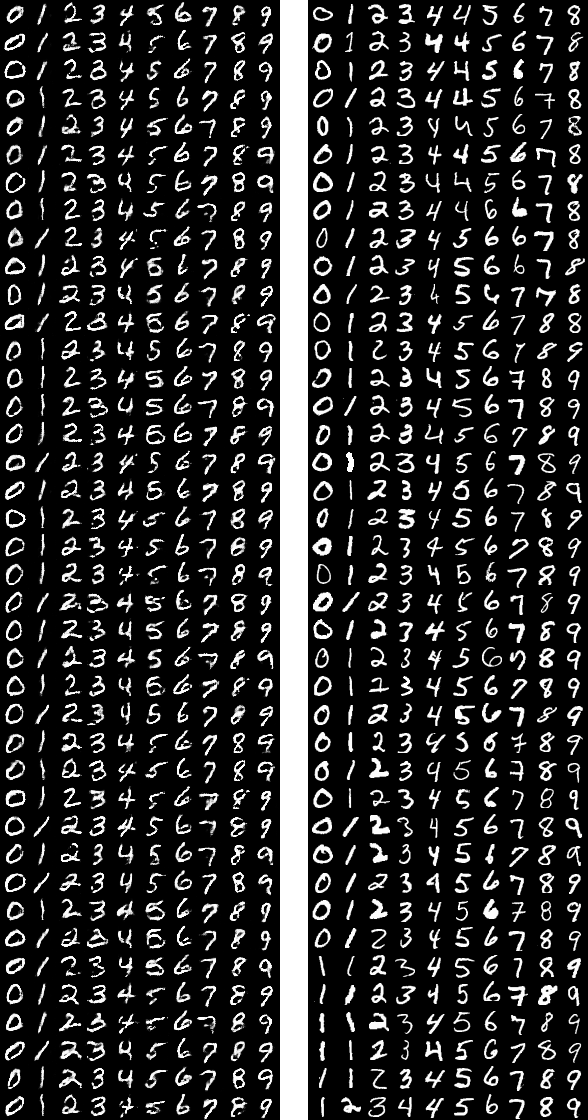 0 1 2 3 4 5 6 7 8 9 0 1 2 3 4 4 5 6 7 8
0 1 2 3 4 5 6 7 8 9 0 1 2 3 4 4 5 6 7 8
0 1 2 3 4 5 6 7 8 9 0 1 2 3 4 4 5 6 7 8
0 1 2 3 4 5 6 7 8 9 0 1 2 3 4 4 5 6 7 8
0 1 2 3 4 5 6 7 8 9 0 1 2 3 4 4 5 6 7 8
0 1 2 3 4 5 6 7 8 9 0 1 2 3 4 4 5 6 7 8
0 1 2 3 4 5 6 7 8 9 0 1 2 3 4 4 5 6 7 8
0 1 2 3 4 5 6 7 8 9 0 1 2 3 4 4 6 6 7 8
0 1 2 3 4 5 6 7 8 9 0 1 2 3 4 5 6 6 7 8
0 1 2 3 4 5 6 7 8 9 0 1 2 3 4 5 6 6 7 8
0 1 2 3 4 5 6 7 8 9 0 1 2 3 4 5 6 7 7 8
0 1 2 3 4 5 6 7 8 9 0 1 2 3 4 5 6 7 8 8
0 1 2 3 4 5 6 7 8 9 0 1 2 3 4 5 6 7 8 9
0 1 2 3 4 5 6 7 8 9 0 1 2 3 4 5 6 7 8 9
0 1 2 3 4 5 6 7 8 9 0 1 2 3 4 5 6 7 8 9
0 1 2 3 4 5 6 7 8 9 0 1 2 3 4 5 6 7 8 9
0 1 2 3 4 5 6 7 8 9 0 1 2 3 4 5 6 7 8 9
0 1 2 3 4 5 6 7 8 9 0 1 2 3 4 5 6 7 8 9
0 1 2 3 4 5 6 7 8 9 0 1 2 3 4 5 6 7 8 9
0 1 2 3 4 5 6 7 8 9 0 1 2 3 4 5 6 7 8 9
0 1 2 3 4 5 6 7 8 9 0 1 2 3 4 5 6 7 8 9
0 1 2 3 4 5 6 7 8 9 0 1 2 3 4 5 6 7 8 9
0 1 2 3 4 5 6 7 8 9 0 1 2 3 4 5 6 7 8 9
0 1 2 3 4 5 6 7 8 9 0 1 2 3 4 5 6 7 8 9
0 1 2 3 4 5 6 7 8 9 0 1 2 3 4 5 6 7 8 9
0 1 2 3 4 5 6 7 8 9 0 1 2 3 4 5 6 7 8 9
0 1 2 3 4 5 6 7 8 9 0 1 2 3 4 5 6 7 8 9
0 1 2 3 4 5 6 7 8 9 0 1 2 3 4 5 6 7 8 9
0 1 2 3 4 5 6 7 8 9 0 1 2 3 4 5 6 7 8 9
0 1 2 3 4 5 6 7 8 9 0 1 2 3 4 5 6 7 8 9
0 1 2 3 4 5 6 7 8 9 0 1 2 3 4 5 6 7 8 9
0 1 2 3 4 5 6 7 8 9 0 1 2 3 4 5 6 7 8 9
0 1 2 3 4 5 6 7 8 9 0 1 2 3 4 5 6 7 8 9
0 1 2 3 4 5 6 7 8 9 0 1 2 3 4 5 6 7 8 9
0 1 2 3 4 5 6 7 8 9 1 1 2 3 4 5 6 7 8 9
0 1 2 3 4 5 6 7 8 9 1 1 2 3 4 5 6 7 8 9
0 1 2 3 4 5 6 7 8 9 1 1 2 3 4 5 6 7 8 9
0 1 2 3 4 5 6 7 8 9 1 1 2 3 4 5 6 7 8 9
0 1 2 3 4 5 6 7 8 9 1 1 2 3 4 5 6 7 8 9
0 1 2 3 4 5 6 7 8 9 1 2 3 4 4 5 6 7 8 9